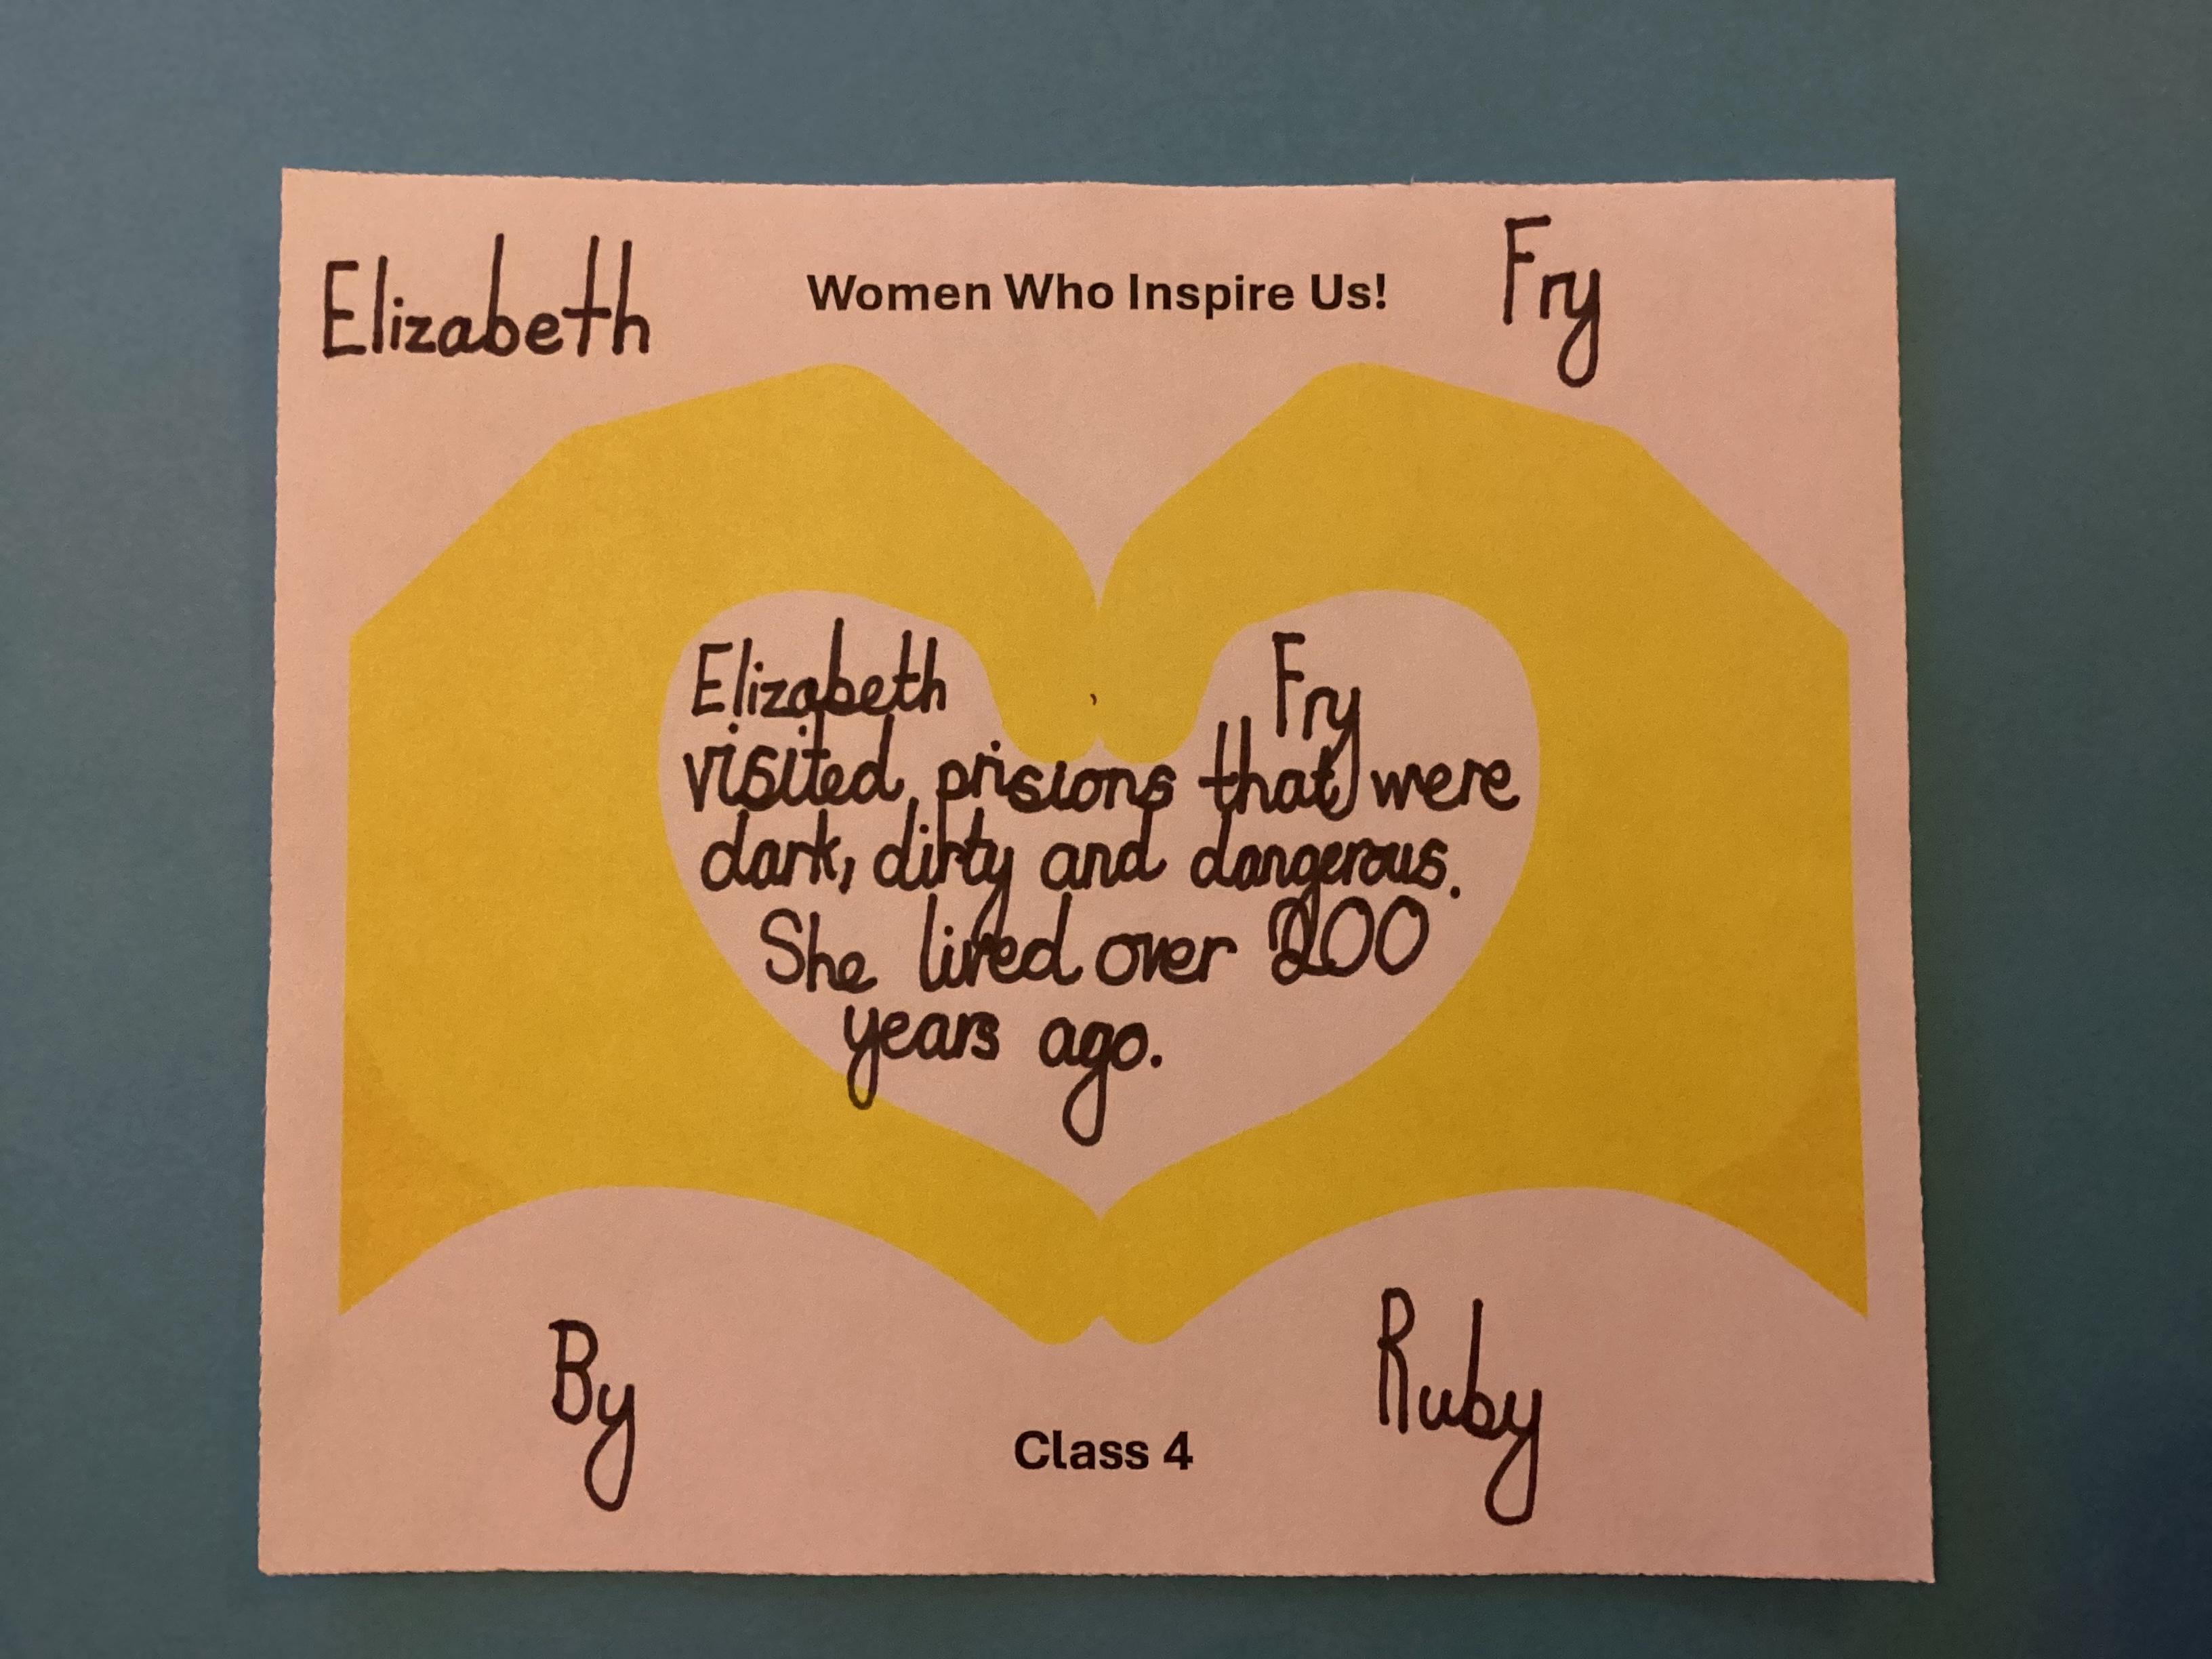 Elizabeth Women Who Inspire Us! Fry
Elizabeth Fry
visited prisions that were
dark, dirty and dangerous.
She lived over 200
years ago.
By Ruby
Class 4